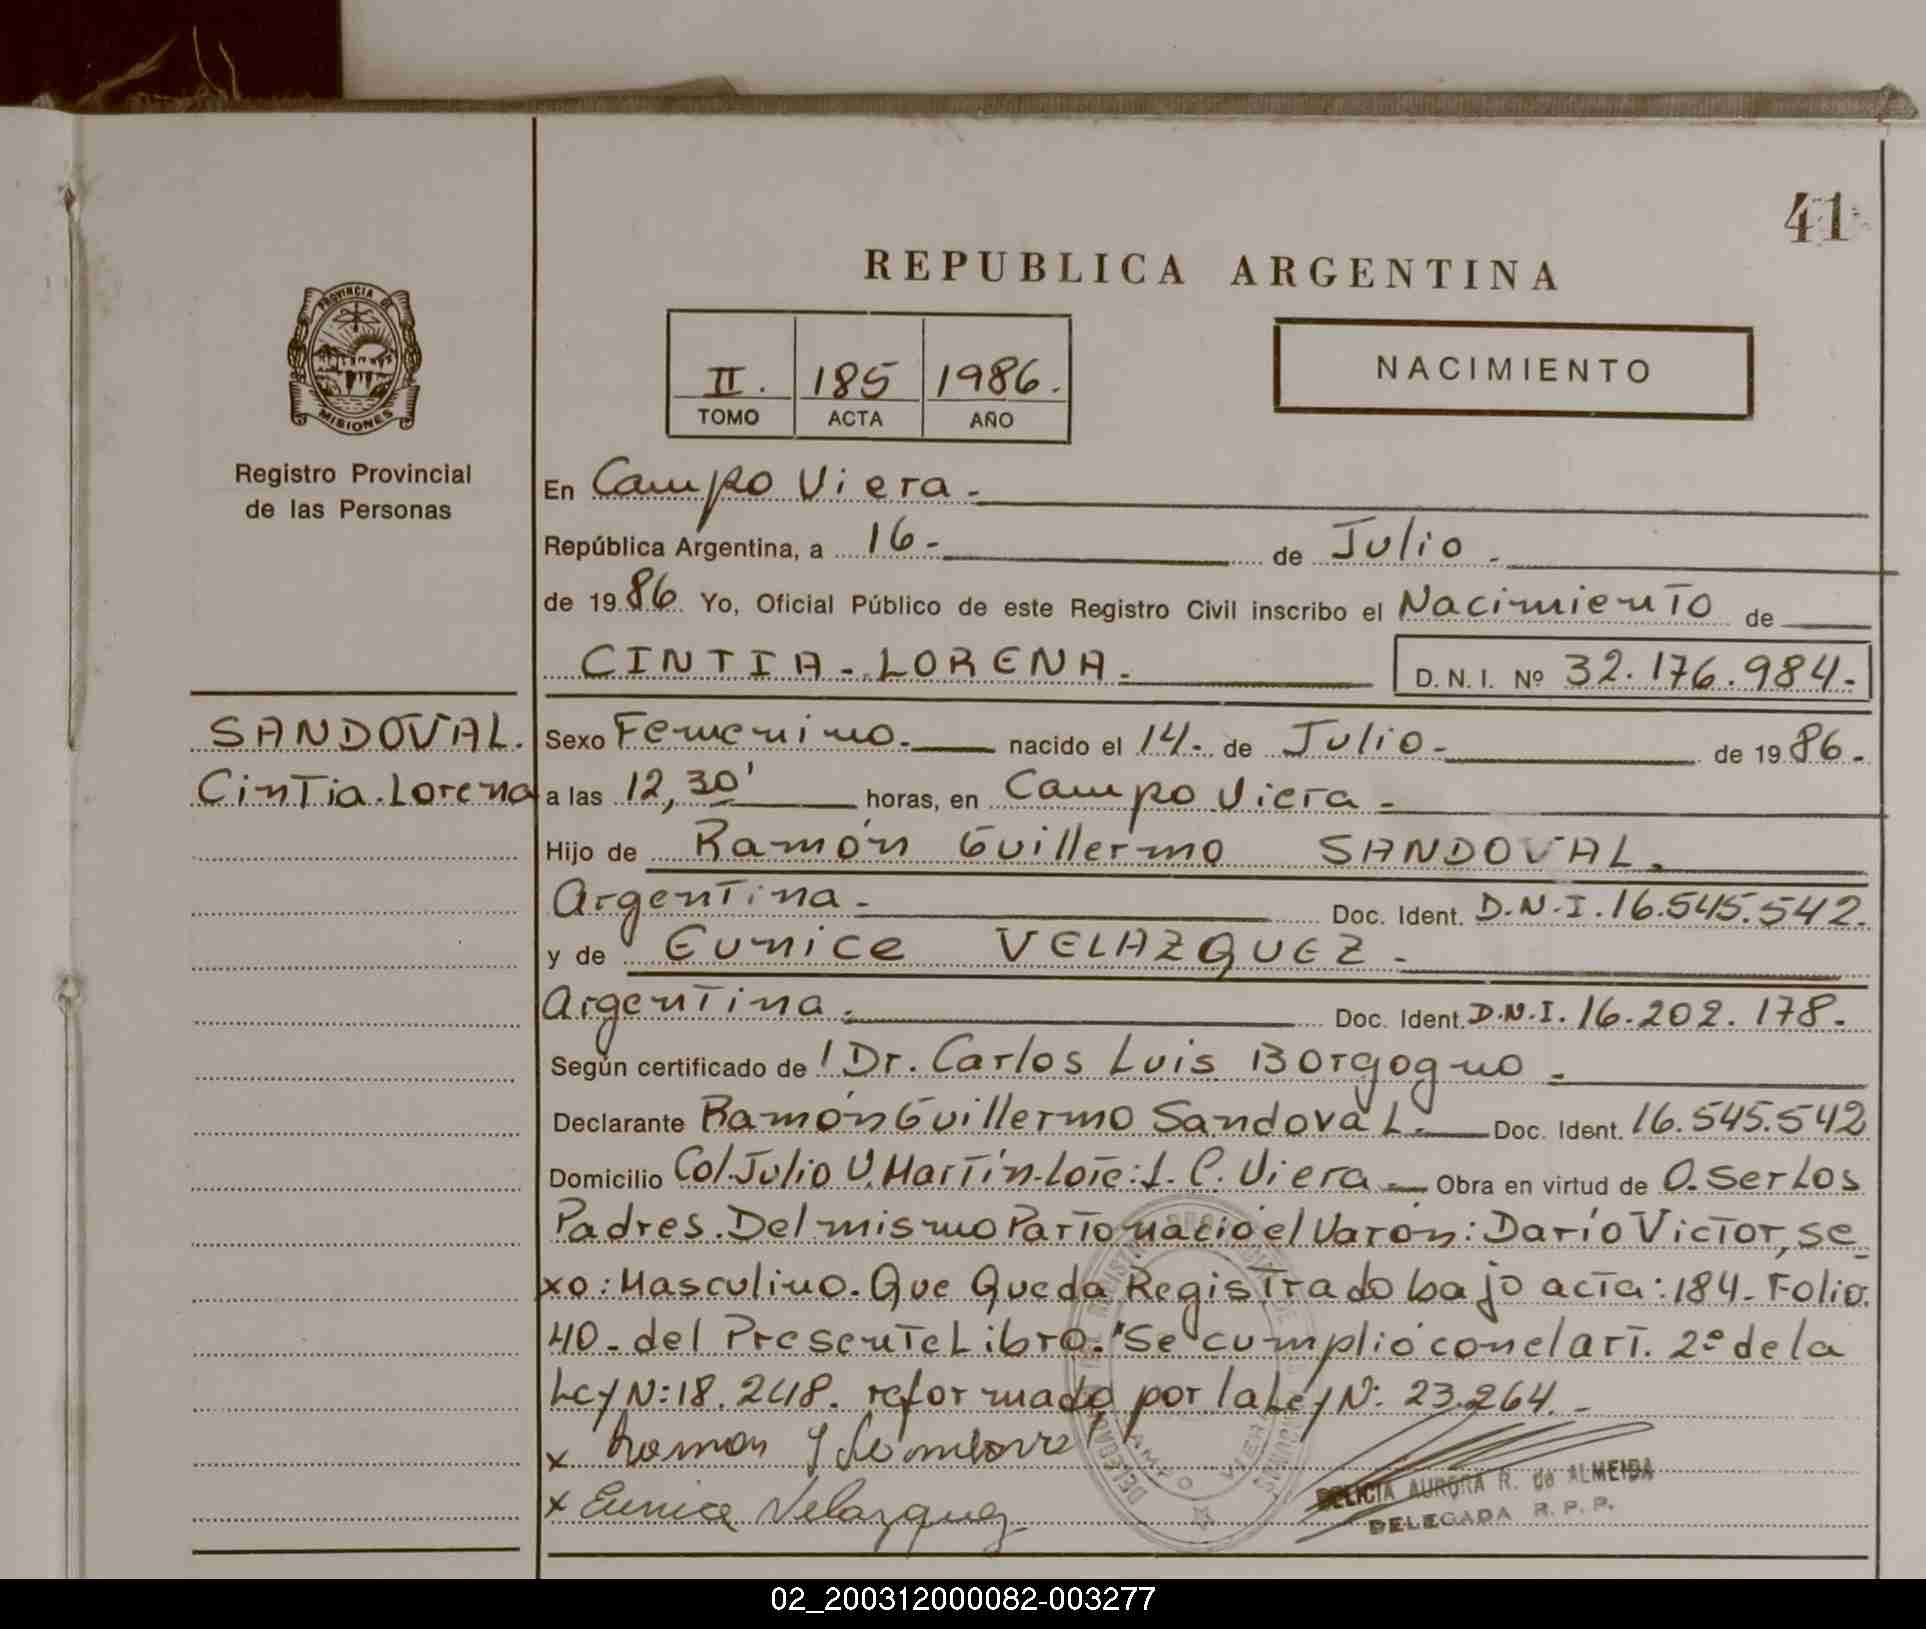 41
REPUBLICA ARGENTINA
PROVINCIA DE
MISIONES
II. 185 1986.
TOMO ACTA AÑO
NACIMIENTO
Registro Provincial
de las Personas
En Campo Viera.
República Argentina, a 16. de Julio.
de 1986 Yo, Oficial Público de este Registro Civil inscribo el Nacimiento de
CINTIA-LORENA. D. N. I. Nº 32.176.984.-
SANDOVAL.
Cintia.Lorena
Sexo Femenino. nacido el 14. de Julio. de 1986.
a las 12,30' horas, en Campo Viera.
Hijo de Ramón Guillermo SANDOVAL.
Argentina. Doc. Ident. D.N.I. 16.545.542.
y de Eunice VELAZQUEZ.
Argentina. Doc. Ident. D.N.I. 16.202.178.
Según certificado de Dr. Carlos Luis Borgogno.
Declarante Ramón Guillermo Sandoval. Doc. Ident. 16.545.542
Domicilio Col. Julio U. Martín-Lote:1. C. Viera. Obra en virtud de O. Ser Los
Padres. Del mismo Parto nació el Varón: Darío Victor, se-
xo: Masculino. Que Queda Registrado bajo acta: 184. Folio.
40. del Presente Libro. "Se cumplió con el art. 2º de la
Ley N: 18.248. reformado por la Ley N: 23.264.-
x Ramon
x Eunice Velazquez
DELICIA AURORA R. de ALMEIDA
DELEGADA R. P. P.
CAMPO VIERA
02_200312000082-003277